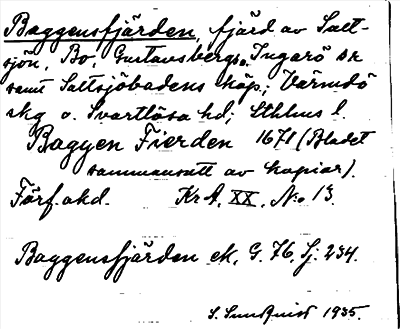 Baggensfjärden, fjärd av Salt-
sjön, Bo, Gustavsbergs o. Ingarö sk
samt Saltsjöbadens köp; Värmdö
skg o. Svartlösa hd; Sthlms l.
Baggen Fierden 1671 (Bladet
sammansatt av kopior).
Förf. akd. KrA, XX, N:o 13.
Baggensfjärden ek, G. 76, Sj. 234.
S. Sundquist 1935.